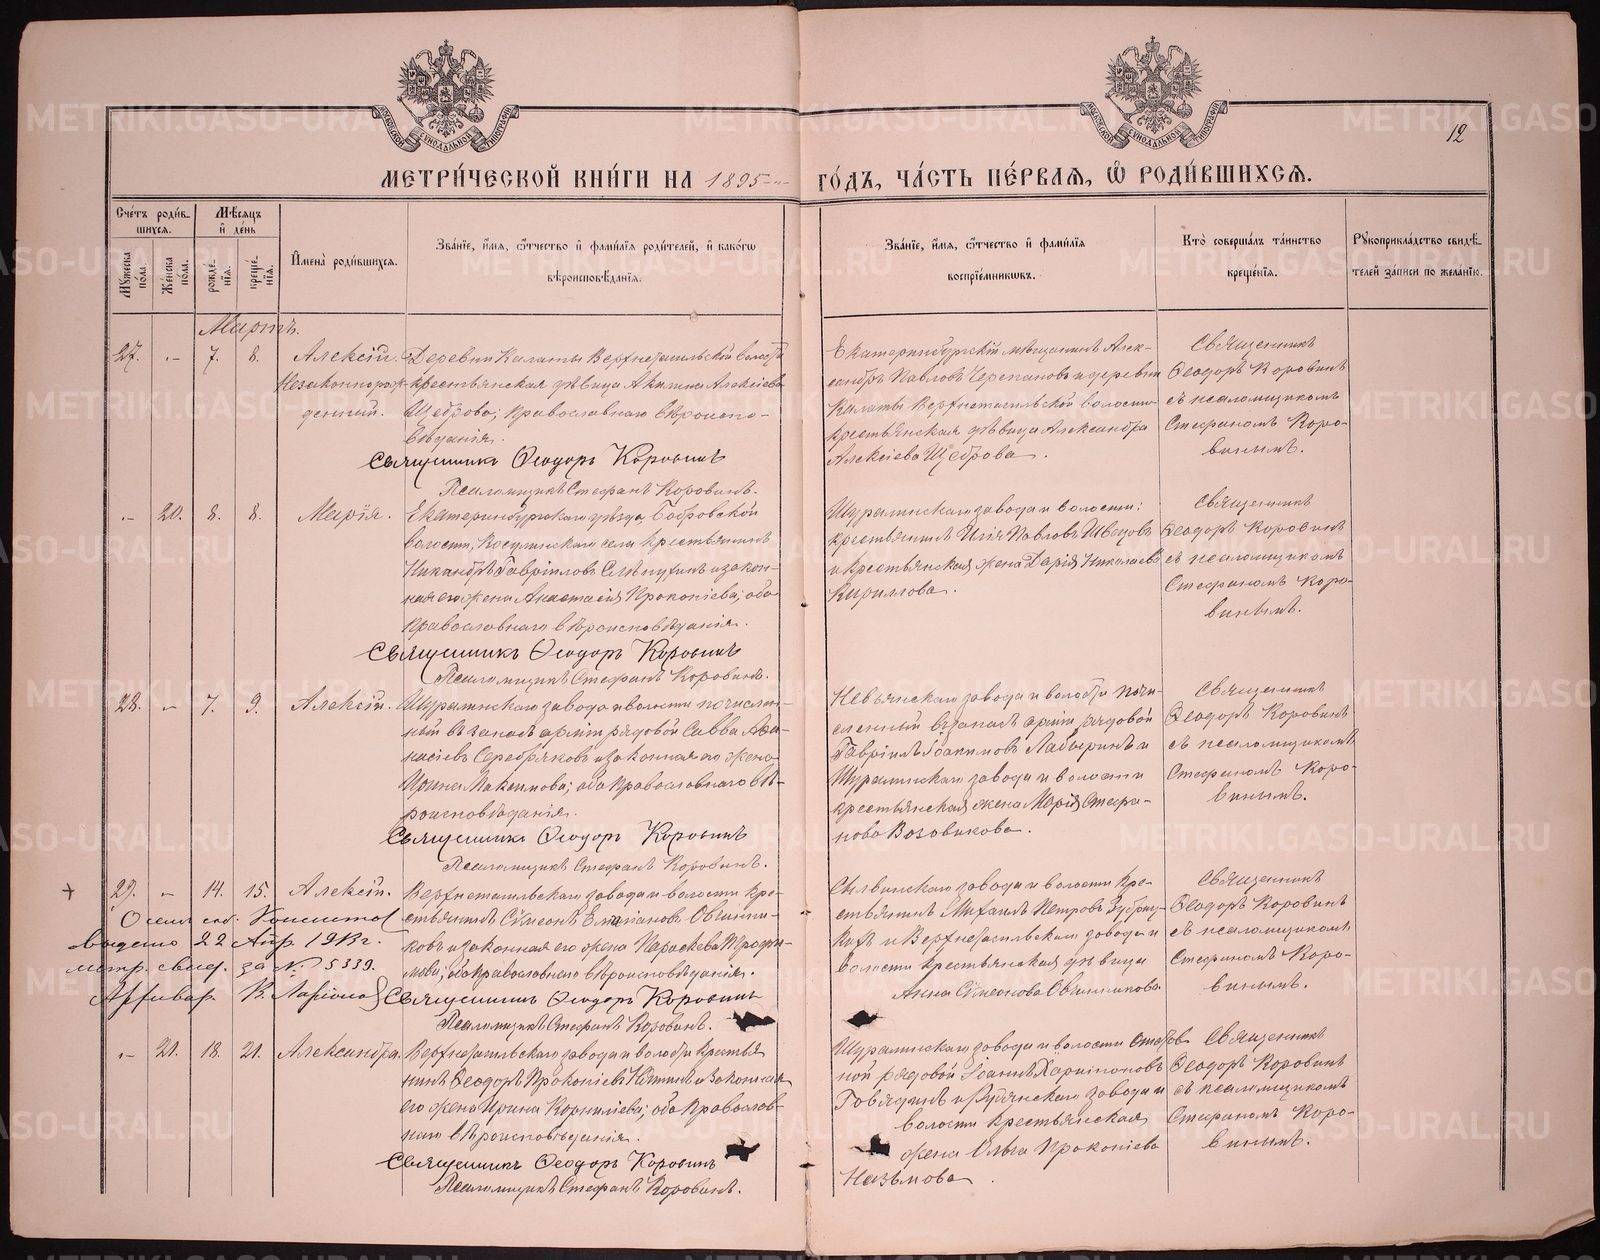 МЕТРИ́ЧЕСКОЙ КНИ́ГИ НА 1895
ГО́ДЪ, ЧА́СТЬ ПЕ́РВАЯ, Ѡ РОДИ́ВШИХСЯ.
12
Сче́тъ роди́вшихся.
Мѣ́сяцъ и де́нь
Имена̀ роди́вшихся.
Зва́нїе, и́мя, ѻ́тчество и фами́лїя роди́телей, и како́гѡ
вѣроисповѣ́данїя.
Зва́нїе, и́мя, ѻ́тчество и фами́лїя
воспрїе́мникѡвъ.
Кто̀ соверша́лъ та́инство
креще́нїя.
Рꙋкоприкла́дство свидѣ́-
телей за́писи по жела́нїю.
Мꙋжеска по́ла.
Же́нска по́ла.
рожде́нїя.
креще́нїя.
Мартъ.
27. - 7. 8. Алексій.
Незаконнорож-
денный.
Деревни Калаты Верхнетагильской волости
крестьянская дѣвица Акилина Алексіева
Щеброва; Православнаго вѣроиспо-
вѣданія.
Священникъ Ѳеодоръ Коровинъ
Псаломщикъ Стефанъ Коровинъ.
Екатеринбургскій мѣщанинъ Алек-
сандръ Павловъ Черепановъ и деревни
Калаты Верхнетагильской волости
крестьянская дѣвица Александра
Алексіева Щеброва.
Священникъ
Ѳеодоръ Коровинъ
съ псаломщикомъ
Стефаномъ Коро-
винымъ.
- 20. 8. 8. Марія.
Екатеринбургскаго уѣзда, Бобровской
волости, Косулинскаго села крестьянинъ
Никандръ Гавріиловъ Слѣпухинъ и закон-
ная его жена Анастасія Прокопіева; оба
Православнаго вѣроисповѣданія.
Священникъ Ѳеодоръ Коровинъ
Псаломщикъ Стефанъ Коровинъ.
Шуралинскаго завода и волости:
крестьянинъ Илія Павловъ Швецовъ
и крестьянская жена Дарія Николаева
Кириллова.
Священникъ
Ѳеодоръ Коровинъ
съ псаломщикомъ
Стефаномъ Коро-
винымъ.
28. - 7. 9. Алексій.
Шуралинскаго завода и волости почислен-
ный въ запасъ арміи рядовой Савва Аѳа-
насіевъ Серебряковъ и законная его жена
Ирина Максимова; оба Православнаго вѣ-
роисповѣданія.
Священникъ Ѳеодоръ Коровинъ
Псаломщикъ Стефанъ Коровинъ.
Невьянскаго завода и волости почи-
сленный въ запасъ арміи рядовой
Гавріилъ Іоакимовъ Лабыринъ и
Шуралинскаго завода и волости
крестьянская жена Марія Стефа-
нова Возовикова.
Священникъ
Ѳеодоръ Коровинъ
съ псаломщикомъ
Стефаномъ Коро-
винымъ.
+ 29. - 14. 15. Алексій.
22 Апр. 1913 г.
метр. свид. за № 5339.
Архивар.
Верхнетагильскаго завода и волости кре-
стьянинъ Сѷмеонъ Емиліановъ Овчинни-
ковъ и законная его жена Параскева Трофи-
мова; оба Православнаго вѣроисповѣданія.
Священникъ Ѳеодоръ Коровинъ
Псаломщикъ Стефанъ Коровинъ.
Сылвинскаго завода и волости кре-
стьянинъ Михаилъ Петровъ
и Верхнетагильскаго завода и
волости крестьянская дѣвица
Анна Сѷмеонова Овчинникова
Священникъ
Ѳеодоръ Коровинъ
съ псаломщикомъ
Стефаномъ Коро-
винымъ.
- 21. 18. 21. Александра.
Верхнетагильскаго завода и волости крестья-
нинъ Ѳеодоръ Прокопіевъ и законная
его жена Ирина Корниліева; оба Православ-
наго вѣроисповѣданія.
Священникъ Ѳеодоръ Коровинъ
Псаломщикъ Стефанъ Коровинъ.
Шуралинскаго завода и волости
рядовой Іоаннъ Харитоновъ
Говядинъ и завода и
волости крестьянская
жена Ольга Прокопіева
Назьмова.
Священникъ
Ѳеодоръ Коровинъ
съ псаломщикомъ
Стефаномъ Коро-
винымъ.
METRIKI.GASO-URAL.RU